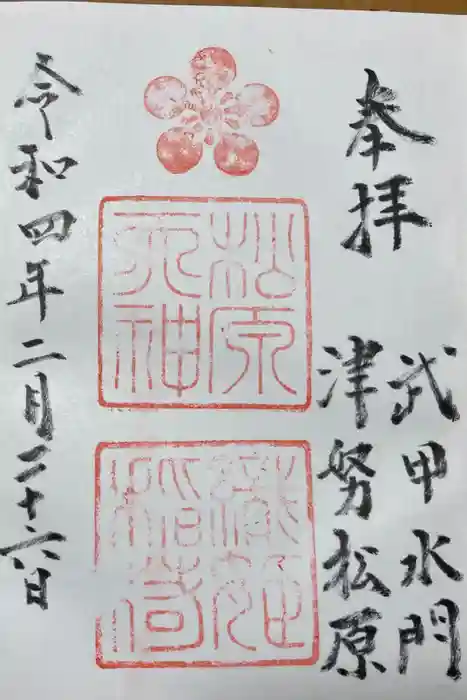 奉拝
武甲水門
津努松原
松原
天神
令和四年二月二十六日